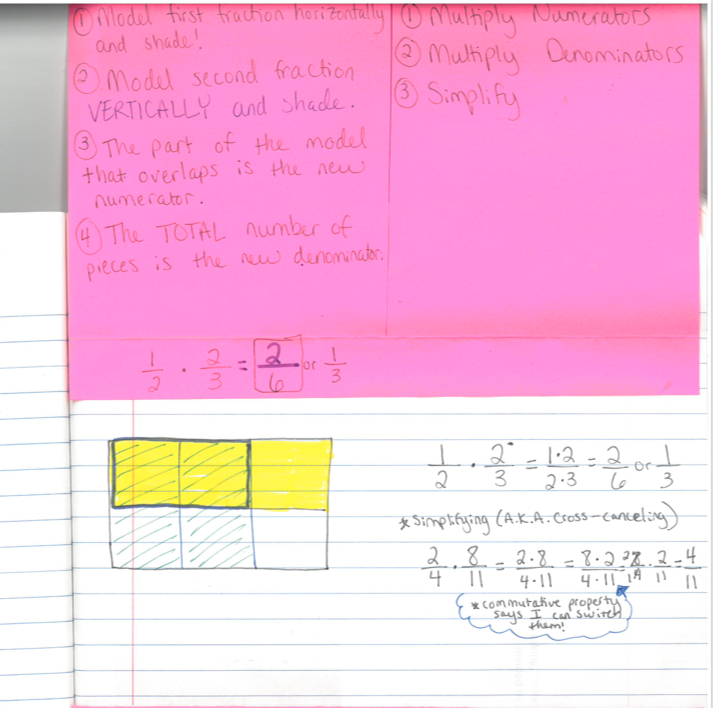 ① Model first fraction horizontally
and shade!
② Model second fraction
VERTICALLY and shade.
③ The part of the model
that overlaps is the new
numerator.
④ The TOTAL number of
pieces is the new denominator.
① Multiply Numerators
② Multiply Denominators
③ Simplify
1/2 · 2/3 = 2/6 or 1/3
1/2 · 2/3 = 1·2/2·3 = 2/6 or 1/3
* Simplifying (A.K.A. Cross-canceling)
2/4 · 8/11 = 2·8/4·11 = 8·2/4·11 = 28/14 · 2/11 = 4/11
* commutative property
says I can switch
them!